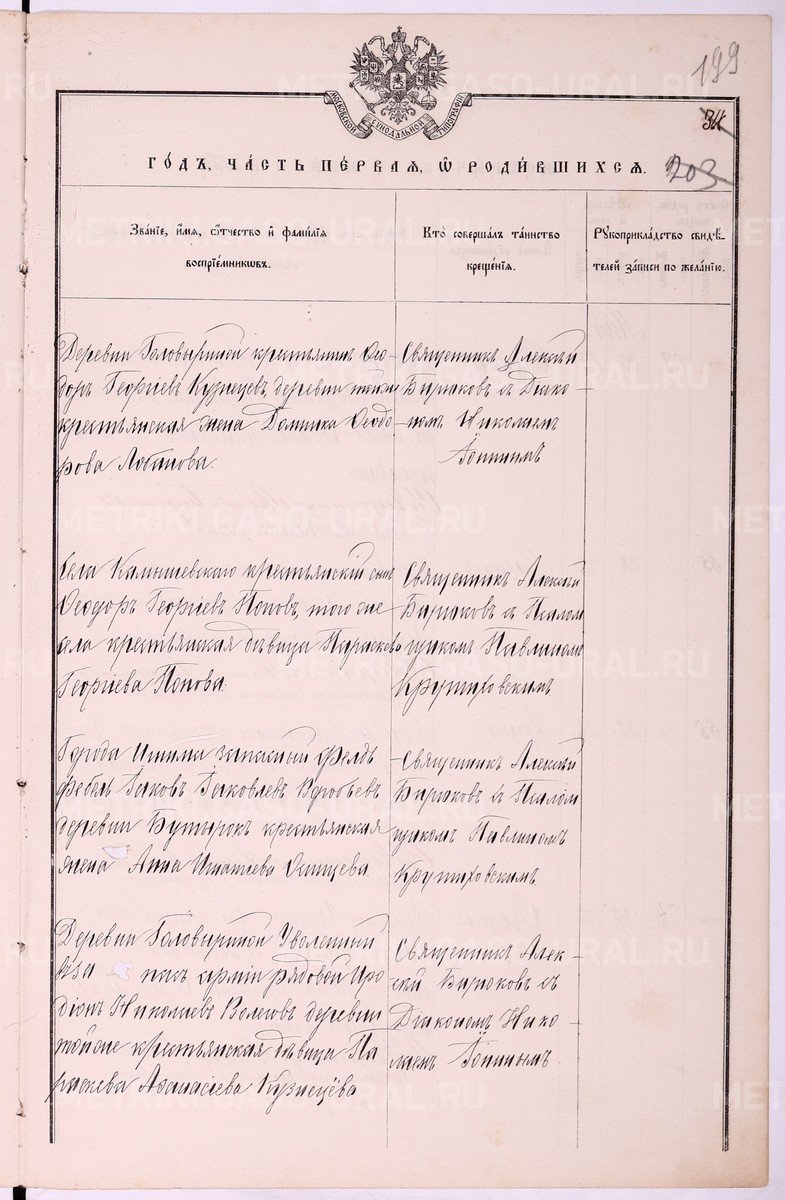 199
34
203
МОСКОВСКОЙ СѴНОДАЛЬНОЙ ТИПОГРАФІИ
ГО́ДЪ, ЧА́СТЬ ПЕ́РВАЯ, Ѡ РОДИ́ВШИХСЯ.
Зва́нїе, и́мя, ѻ҆́тчество и҆ фами́лїя
воспрїе́мниковъ.
Кто̀ соверша́лъ та́инство
креще́нїя.
Рꙋкоприкла́дство свидѣ́-
телей за́писи по жела́нїю.
Деревни Головыриной крестьянинъ Ѳео-
доръ Георгіевъ Кузнецовъ, деревни тойже
крестьянская жена Домника Ѳеодо-
рова Лобанова.
Священникъ Алексѣй
Бирюковъ съ Діако-
-номъ Николаемъ
Села Камышевскаго крестьянскій сынъ
Ѳеодоръ Георгіевъ Поповъ, того же
села крестьянская дѣвица Параскева
Георгіева Попова.
Священникъ Алексѣй
Бирюковъ съ Псалом
щикомъ Павлиномъ
Крутиховскимъ
Города Ишима запасный фельд
фебель Іаковъ Іаковлевъ Воробьевъ
деревни Бутырокъ крестьянская
жена Анна Игнатіева Осинцева.
Священникъ Алексѣй
Бирюковъ съ Псалом
щикомъ Павлиномъ
Крутиховскимъ.
Деревни Головыриной Уволенный
въ за пасъ арміи рядовой Иро
діонъ Николаевъ Волеговъ деревни
тойже крестьянская дѣвица Па
раскева Аѳанасіева Кузнецова
Священникъ Алек-
сѣй Бирюковъ съ
Діакономъ Нико-
лаемъ
METRIKI.GASO-URAL.RU